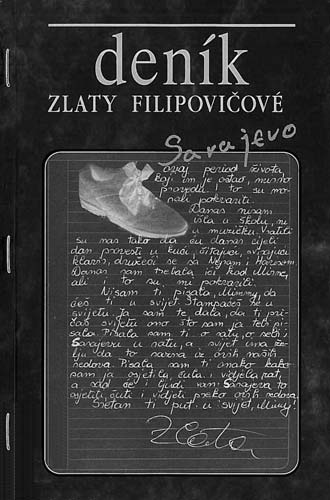 deník
ZLATY FILIPOVIČOVÉ
Sarajevo
ovaj period života
koji im je ostao, mirno
provedu i to su mo-
rali pokvariti.
Danas nisam
išla u školu ni
u muzičku. Vratili
su nas tako da ću danas cijeli
dan provesti u kući, čitajući, svirajući
klavir, družeći se s Nejrom i Harisom.
Danas sam trebala ići kod Mirne,
ali i to su mi pokvarili.
Nisam ti pisala, Mimmy, da
ideš ti u svijet. Štampaćeš se u
svijetu. Ja sam te dala, da ti pri-
čaš svijetu ono što sam ja tebi pi-
sala. Pisala sam ti o ratu, o sebi i
Sarajevu u ratu, a svijet ima že-
lju da to sazna iz ovih naših
redova. Pisala sam ti onako kako
sam ja osjetila, čula i vidjela rat,
a sad će i ljudi van Sarajeva to
osjetiti, čuti i vidjeti preko ovih redova.
Sretan ti put u svijet, Mimmy!
Zlata